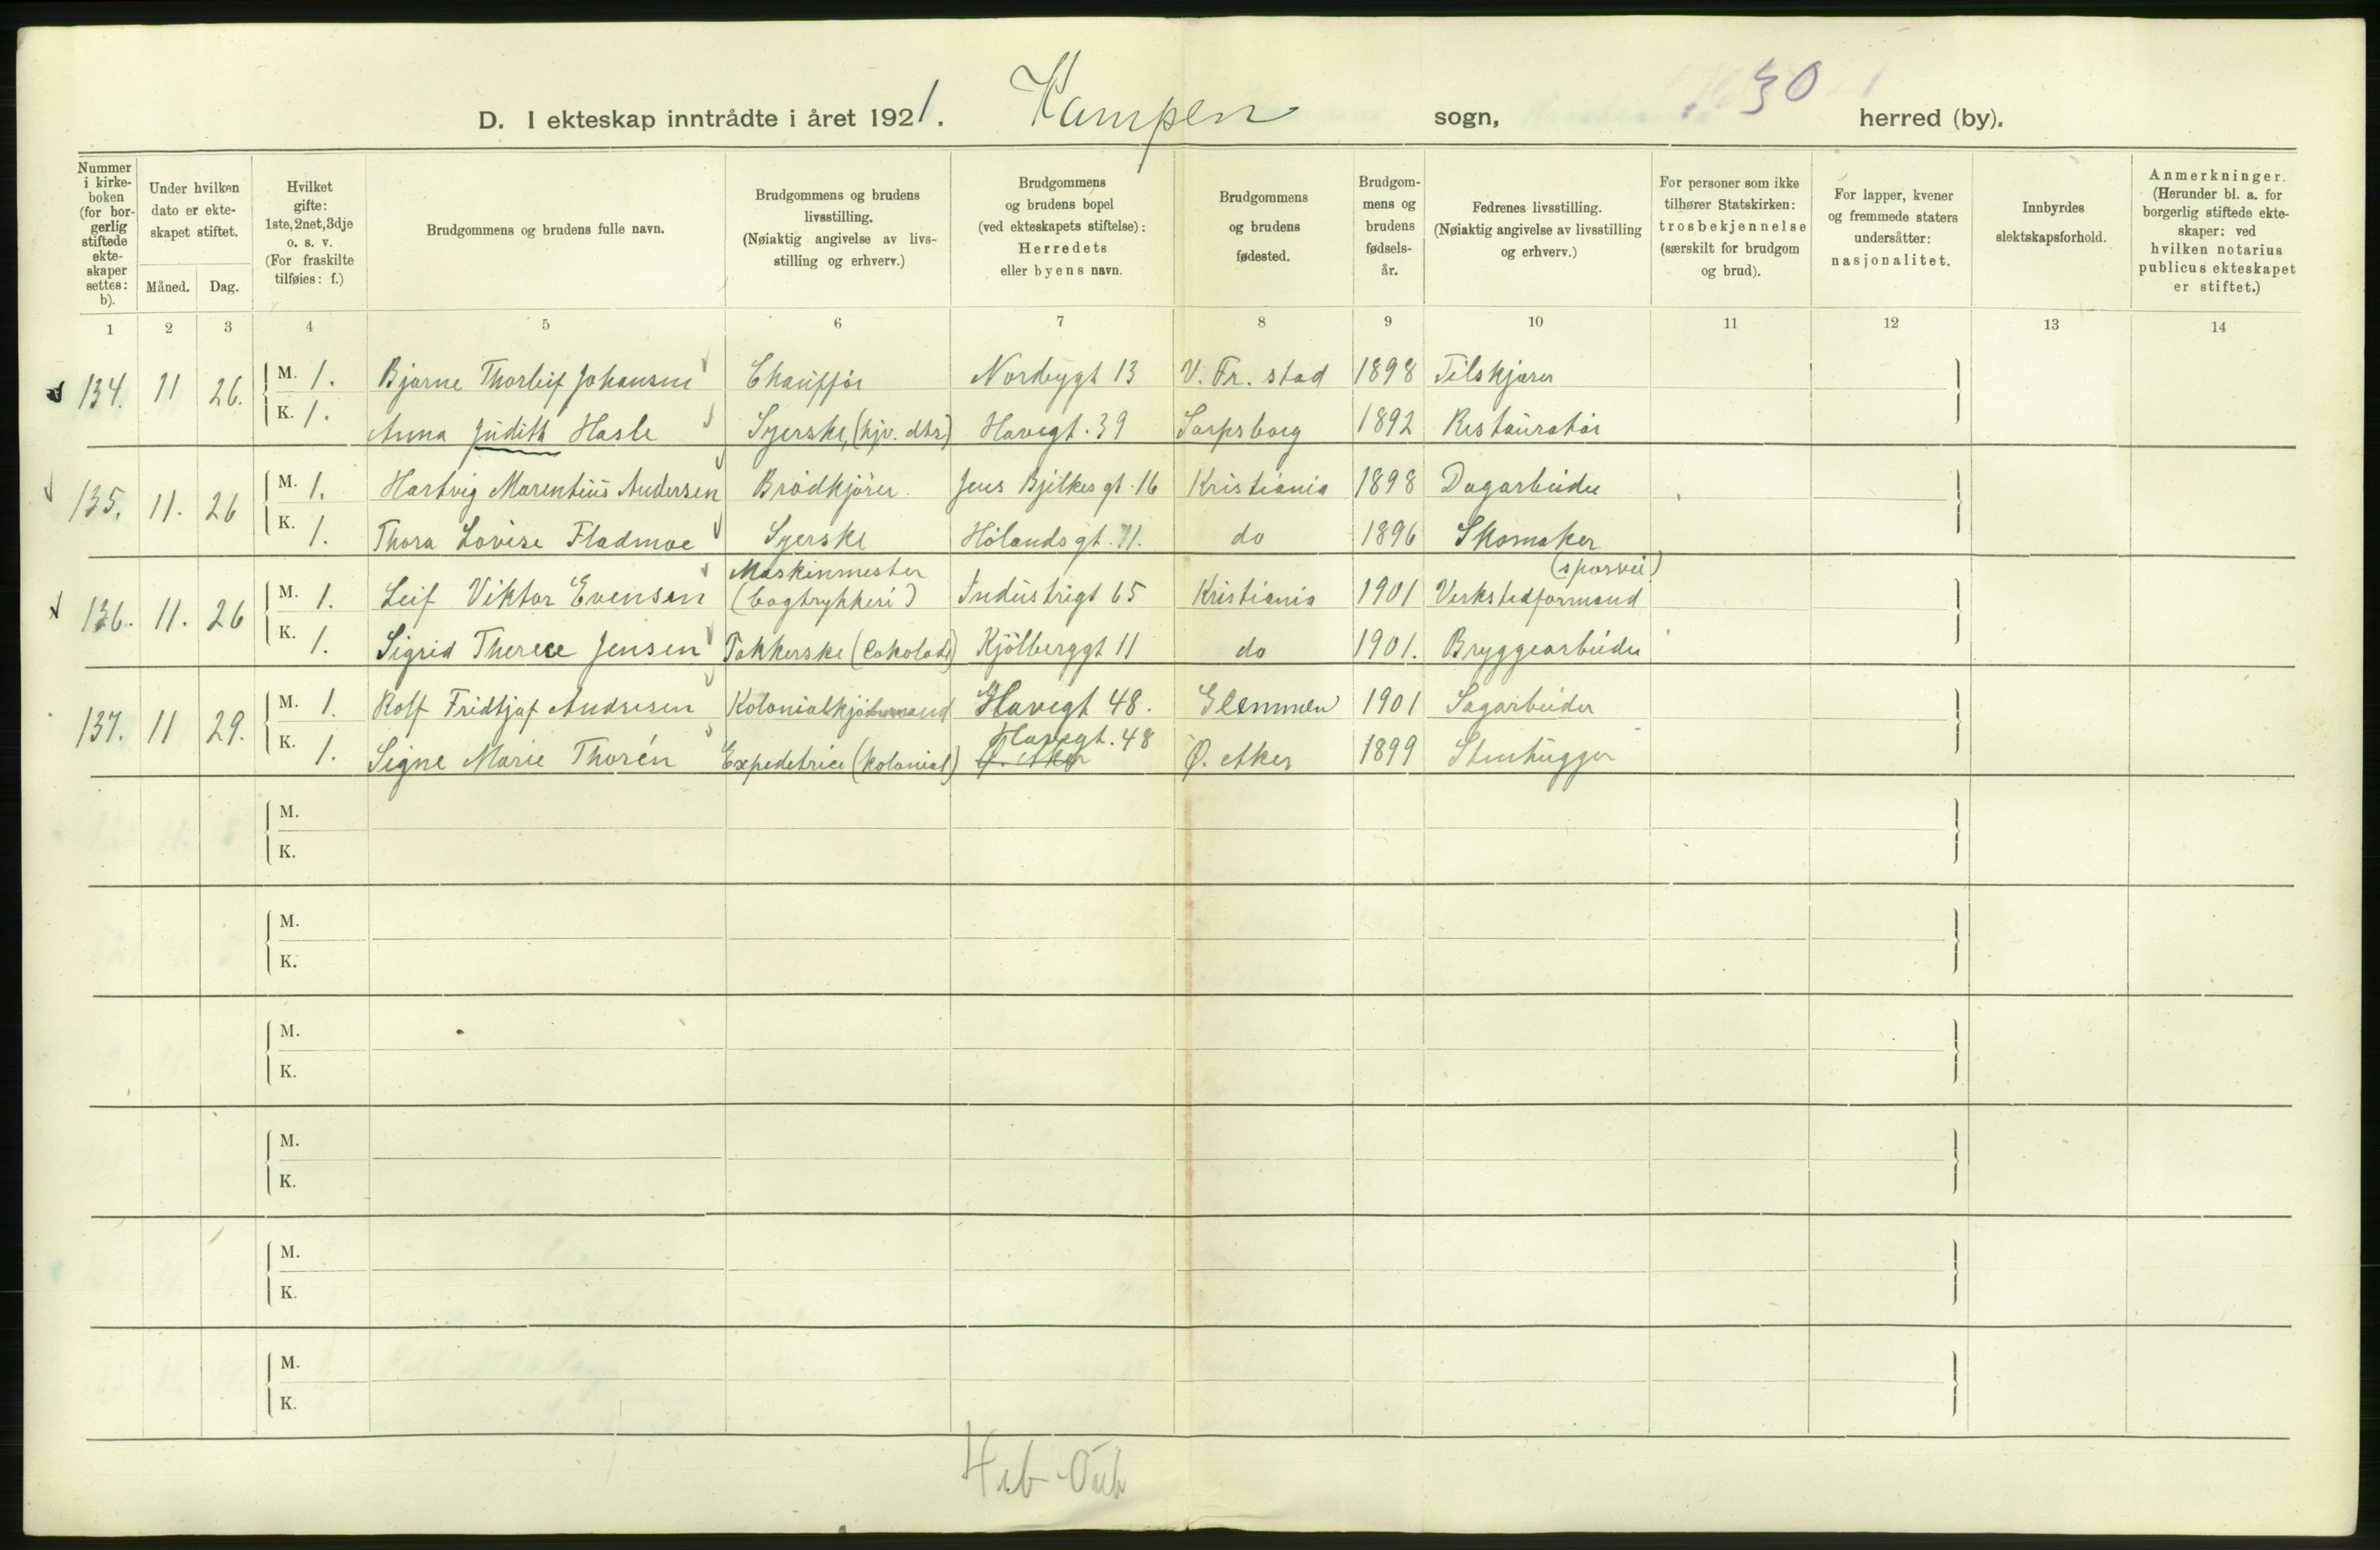 D. I ekteskap inntrådte i året 1921. Kampen sogn, 30 herred (by).
Nummer i kirke-boken (for bor-gerlig stiftede ekte-skaper settes: b).
Under hvilken dato er ekte-skapet stiftet.
Måned. Dag.
Hvilket gifte: 1ste, 2net, 3dje o. s. v. (For fraskilte tilføies: f.)
Brudgommens og brudens fulle navn.
Brudgommens og brudens livsstilling. (Nøiaktig angivelse av livs-stilling og erhverv.)
Brudgommens og brudens bopel (ved ekteskapets stiftelse): Herredets eller byens navn.
Brudgommens og brudens fødested.
Brudgom-mens og brudens fødsels-år.
Fedrenes livsstilling. (Nøiaktig angivelse av livsstilling og erhverv.)
For personer som ikke tilhører Statskirken: trosbekjennelse (særskilt for brudgom og brud).
For lapper, kvener og fremmede staters undersåtter: nasjonalitet.
Innbyrdes slektskapsforhold.
Anmerkninger. (Herunder bl. a. for borgerlig stiftede ekte-skaper: ved hvilken notarius publicus ekteskapet er stiftet.)
1 2 3 4 5 6 7 8 9 10 11 12 13 14
134. 11 26. M. 1. Bjarne Thorleif Johansen Chauffør Nordbygt 13 V. Fr. stad 1898 Filskjærer
K. 1. Anna Judith Hasle Syerske, (hjv. dtr) Havegt. 39 Sarpsborg 1892 Restauratør
135. 11. 26 M. 1. Hartvig Marentius Andersen Brødkjører. Jens Bjelkes gt. 16 Kristiania 1898 Dagarbeider
K. 1. Thora Lovise Fladmoe Syerske Hølandsgt. 11. do 1896 Skomaker
136. 11. 26 M. 1. Leif Viktor Evensen Maskinmester (bogtrykkeri) Industrigt 65 Kristiania 1901 Verkstedformand (sporvei)
K. 1. Sigrid Therese Jensen Pakkerske (Cokolade) Kjølberggt 11 do 1901. Bryggearbeider
137. 11 29. M. 1. Rolf Fridtjof Andresen Kolonialkjøbmand Havegt 48. Glemmen 1901 Sagarbeider
K. 1. Signe Marie Thorén Expeditrice (kolonial) Havegt. 48 Ø. Aker Ø. Aker 1899 Stenhugger
M.
K.
M.
K.
M.
K.
M.
K.
M.
K.
M.
K.